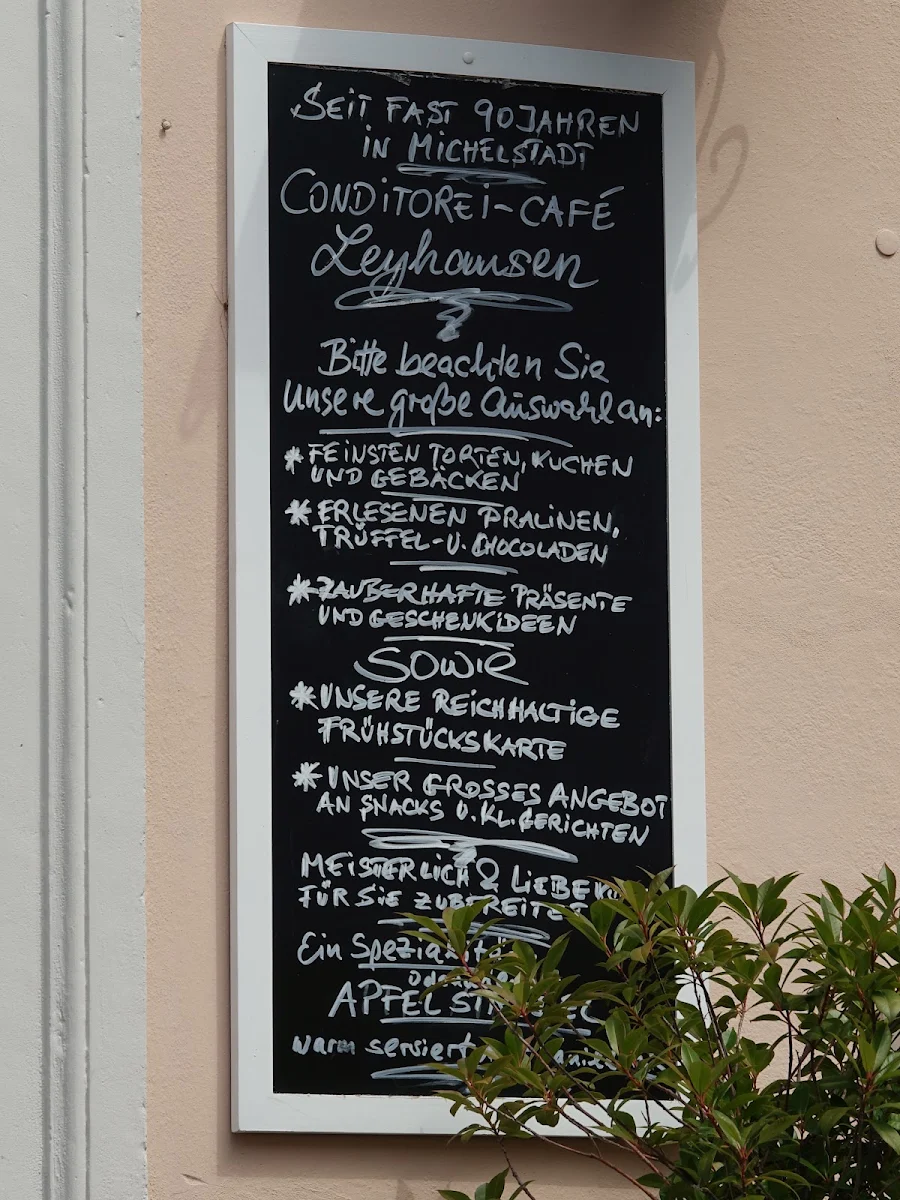 SEIT FAST 90 JAHREN
IN MICHELSTADT
CONDITOREI-CAFÉ
Leyhausen
Bitte beachten Sie
Unsere große Auswahl an:
* FEINSTEN TORTEN, KUCHEN
UND GEBÄCKEN
* ERLESENEN PRALINEN,
TRÜFFEL- U. CHOCOLADEN
* ZAUBERHAFTE PRÄSENTE
UND GESCHENKIDEEN
SOWIE
* UNSERE REICHHALTIGE
FRÜHSTÜCKSKARTE
* UNSER GROSSES ANGEBOT
AN SNACKS U. KL. GERICHTEN
MEISTERLICH &
FÜR SIE ZUBEREITET
Ein
warm serviert